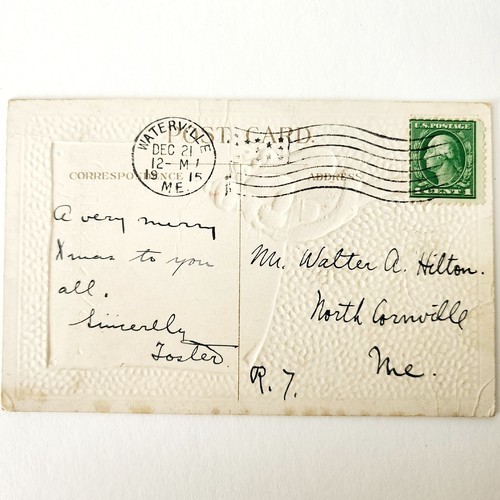 POST CARD.
WATERVILLE
DEC 21
12-M
1915
ME.
U.S. POSTAGE
1 CENTS 1
CORRESPONDENCE
ADDRESS
A very merry
Xmas to you
all.
Sincerelly
Foster.
Mr. Walter A. Hilton.
North Cornville
Me.
R. 7.